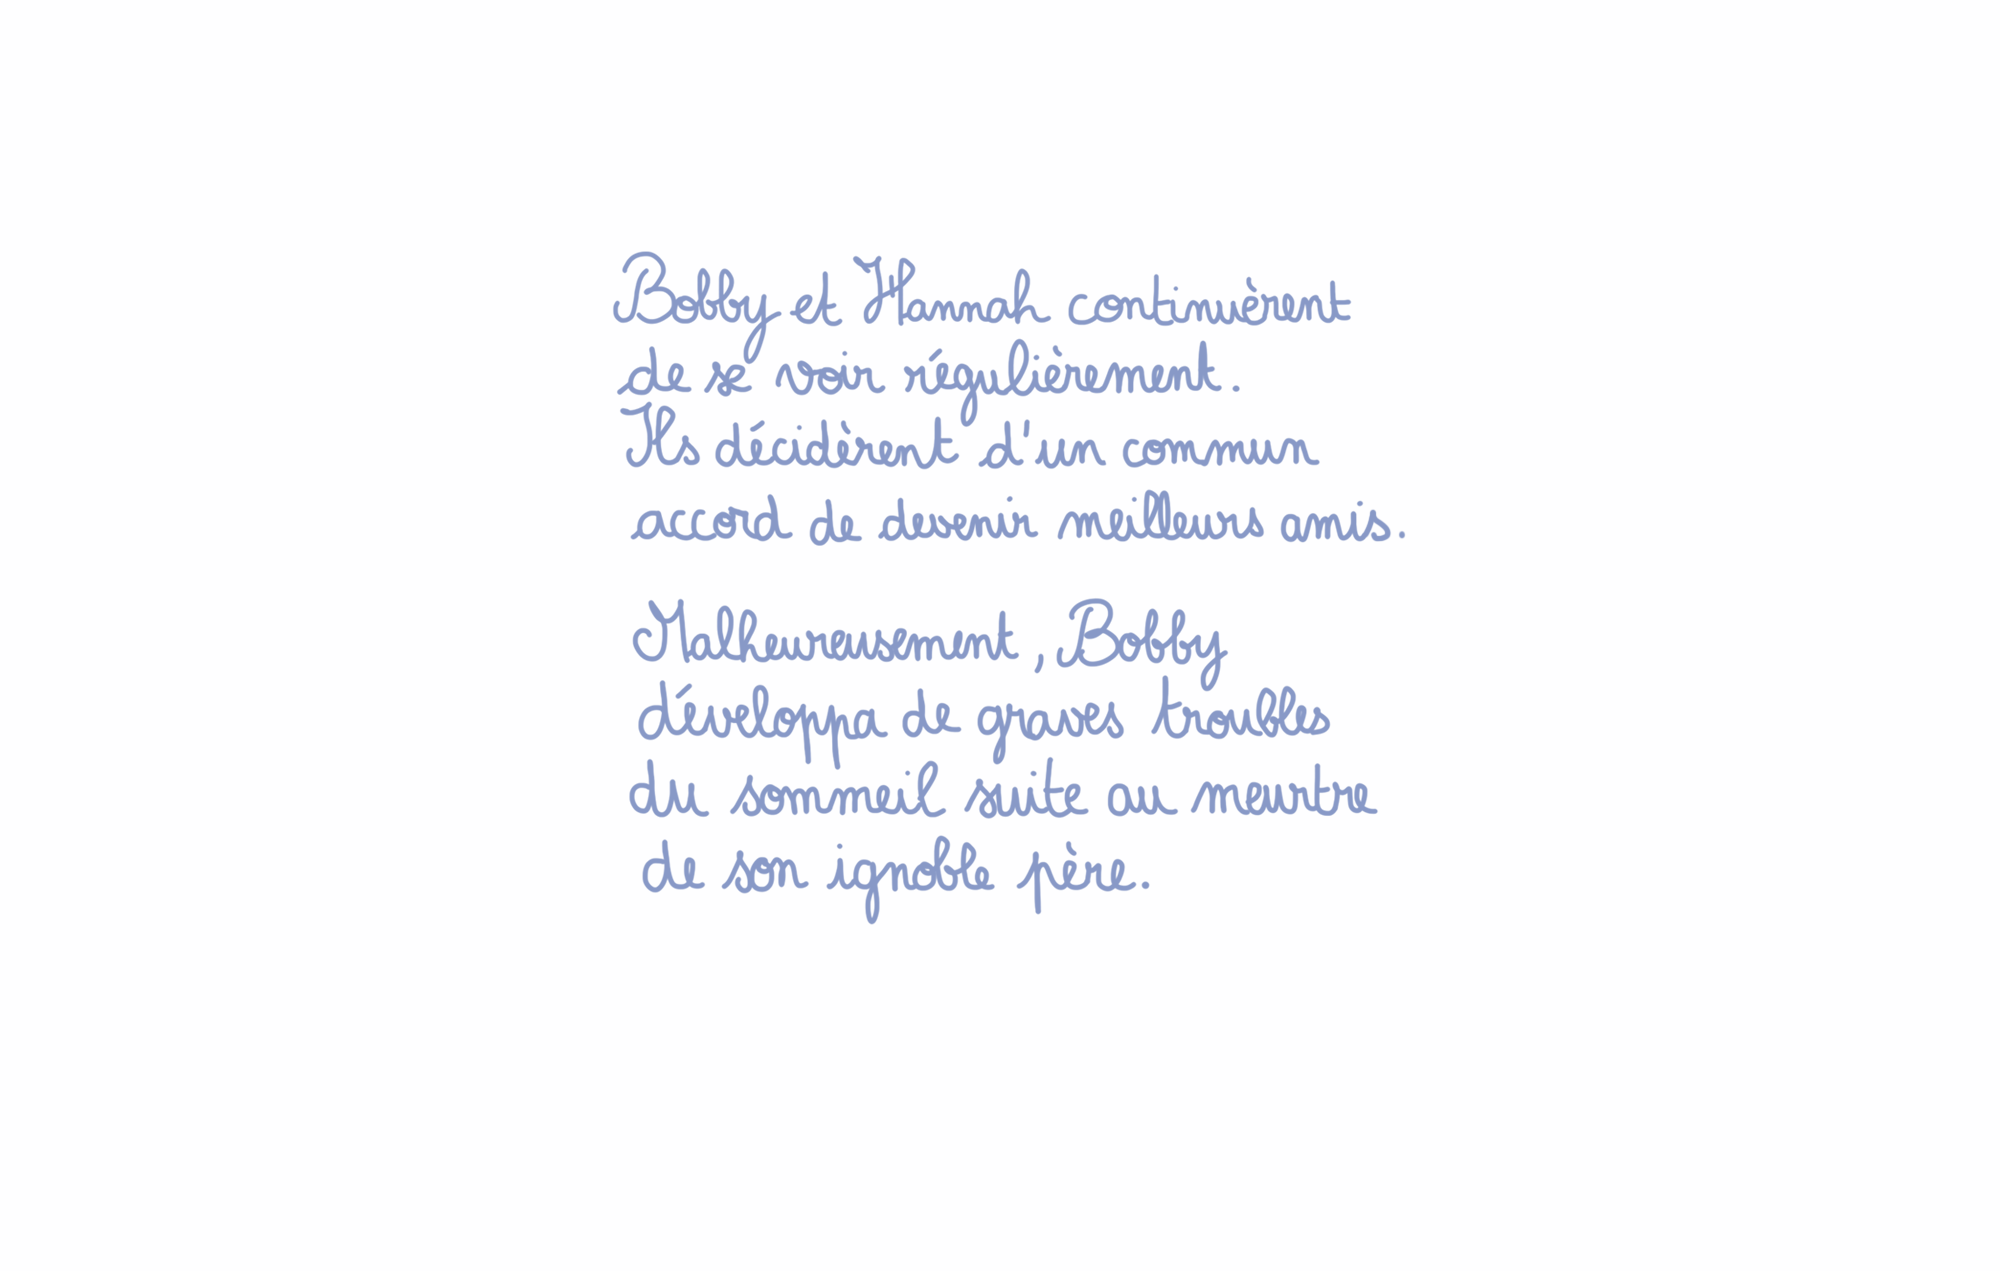 Bobby et Hannah continuèrent
de se voir régulièrement.
Ils décidèrent d'un commun
accord de devenir meilleurs amis.
Malheureusement, Bobby
développa de graves troubles
du sommeil suite au meurtre
de son ignoble père.